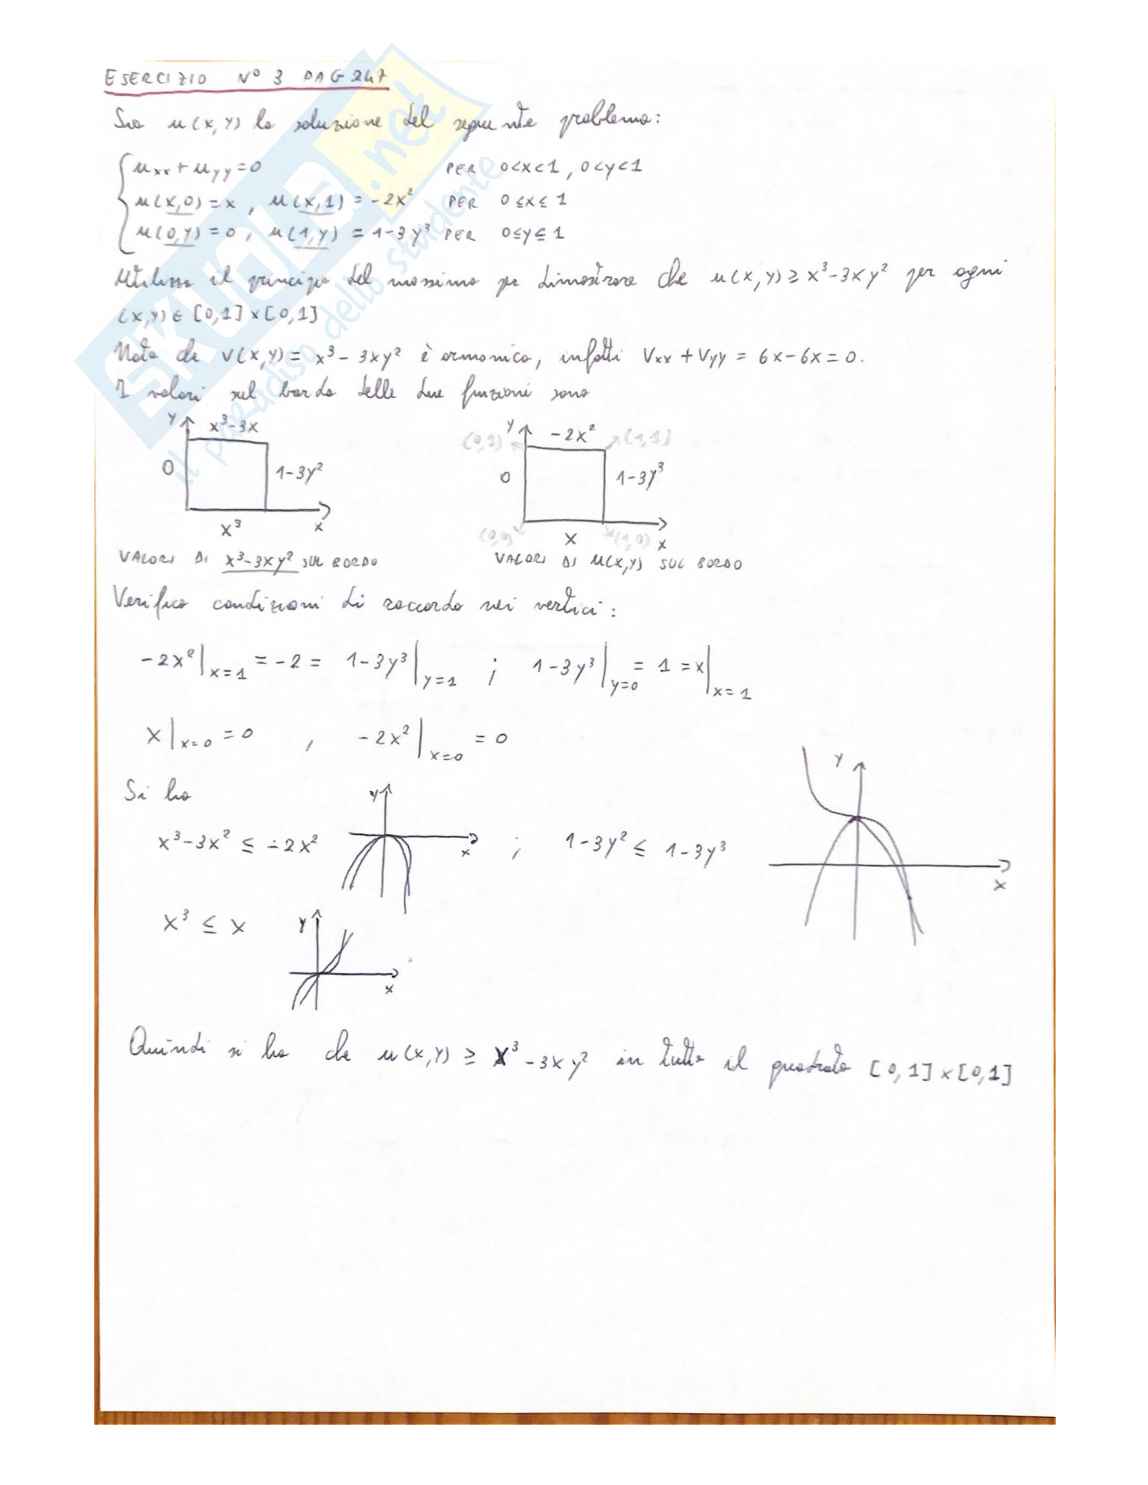 ESERCIZIO N° 3 PAG 247
Sia u(x,y) la soluzione del seguente problema:
uxx + uyy = 0 PER 0<x<1, 0<y<1
u(x,0) = x, u(x,1) = -2x² PER 0≤x≤1
u(0,y) = 0, u(1,y) = 1-3y³ PER 0≤y≤1
Utilizza il principio del massimo per dimostrare che u(x,y) ≥ x³-3xy² per ogni
(x,y) ∈ [0,1]×[0,1]
Nota che V(x,y) = x³-3xy² è armonica, infatti Vxx + Vyy = 6x-6x = 0.
I valori sul bordo delle due funzioni sono
y x³-3x
0 1-3y²
x³ x
y -2x²
(0,1) (1,1)
0 1-3y³
(0,0) x (1,0) x
VALORI DI x³-3xy² SUL BORDO VALORI DI u(x,y) SUL BORDO
Verifico condizioni di raccordo nei vertici:
-2x²|x=1 = -2 = 1-3y³|y=1 ; 1-3y³|y=0 = 1 = x|x=1
x|x=0 = 0 , -2x²|x=0 = 0
Si ha
x³-3x² ≤ -2x² y x ; 1-3y² ≤ 1-3y³ y x
x³ ≤ x y x
Quindi si ha che u(x,y) ≥ x³-3xy² in tutto il quadrato [0,1]×[0,1]
SKUOLA.net
il paradiso dello studente